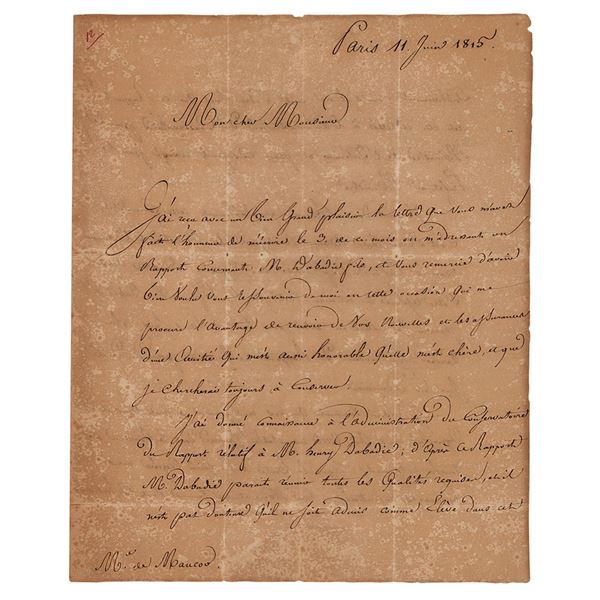 12
Paris 11. Juin 1815.
Mon cher Monsieur
J'ai reçu avec un bien Grand plaisir la lettre que vous m'avez
fait l'honneur de m'écrire le 3. de ce mois en m'adressant un
Rapport concernant M. Dabadie fils, et vous remercie d'avoir
bien voulu vous ressouvenir de moi en cette occasion qui me
procure l'avantage de recevoir de vos Nouvelles et les assurances
d'une Amitié qui m'est aussi honorable qu'elle m'est chère, et que
je chercherai toujours à conserver.
J'ai donné connaissance à l'administration du Conservatoire
du Rapport relatif à M. henry Dabadie; d'après ce Rapport
M. Dabadie parait réunir toutes les Qualités requises, et il
n'est pas douteux qu'il ne soit admis comme Élève dans cet
Mr. de Maucoo.